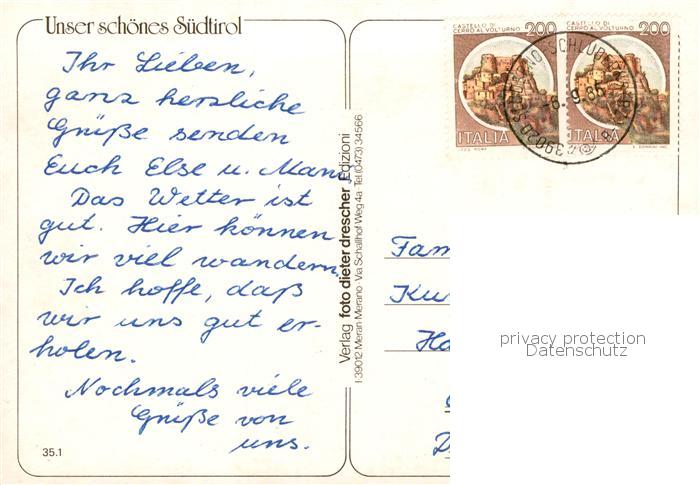 Unser schönes Südtirol
Ihr Lieben,
ganz herzliche
Grüße senden
Euch Else u.
Das Wetter ist
gut. Hier können
wir viel wandern.
Ich hoffe, daß
wir uns gut er-
holen.
Nochmals viele
Grüße von
uns.
35.1
Verlag foto dieter drescher Edizioni
I-39012 Meran Merano · Via Schallhof Weg 4a · Tel. (0473) 34566
CASTELLO DI
CERRO AL VOLTURNO 200
ITALIA
CASTELLO DI
CERRO AL VOLTURNO 200
ITALIA
-6.9.85
39020
Fam
Ku
Ha
privacy protection
Datenschutz